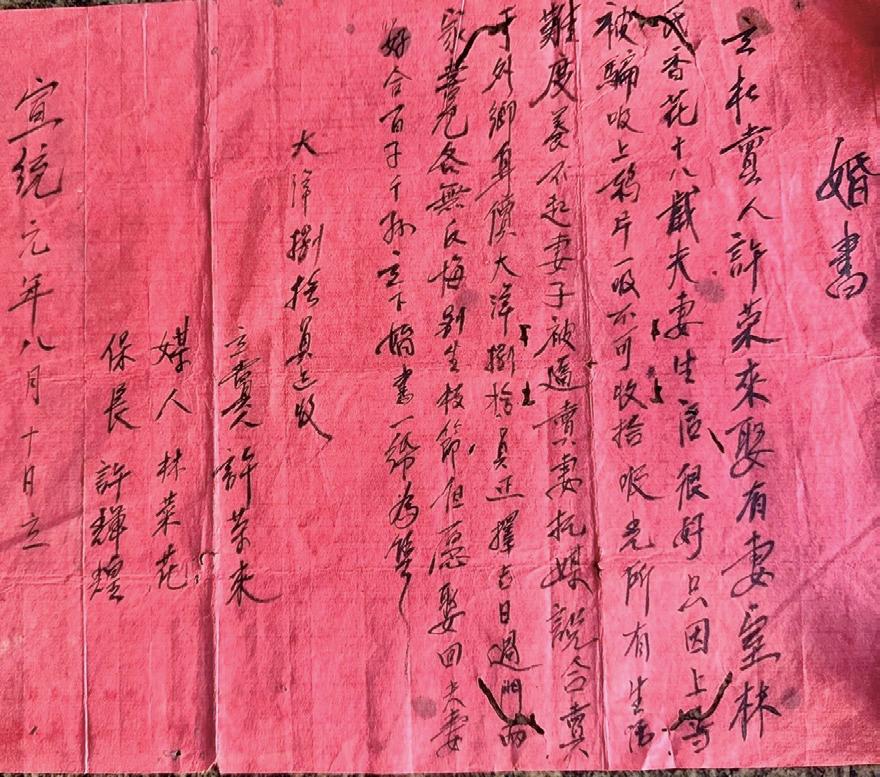 婚書
立杜賣人許荣來娶有妻室林
氏香花十八載夫妻生活很好只因上等
被騙吸上鸦片一吸不可收拾吸光所有生活
難度養不起妻子被逼賣妻托媒説合賣
于外鄉身價大洋捌拾員正擇吉日過門两
家喜色各無反悔别生枝節但愿娶回夫妻
好合百子千孙立下婚書一紙為憑
大洋捌拾員正收
立賣 許荣來
媒人 林菜花
保長 許輝煌
宣統元年八月十日立